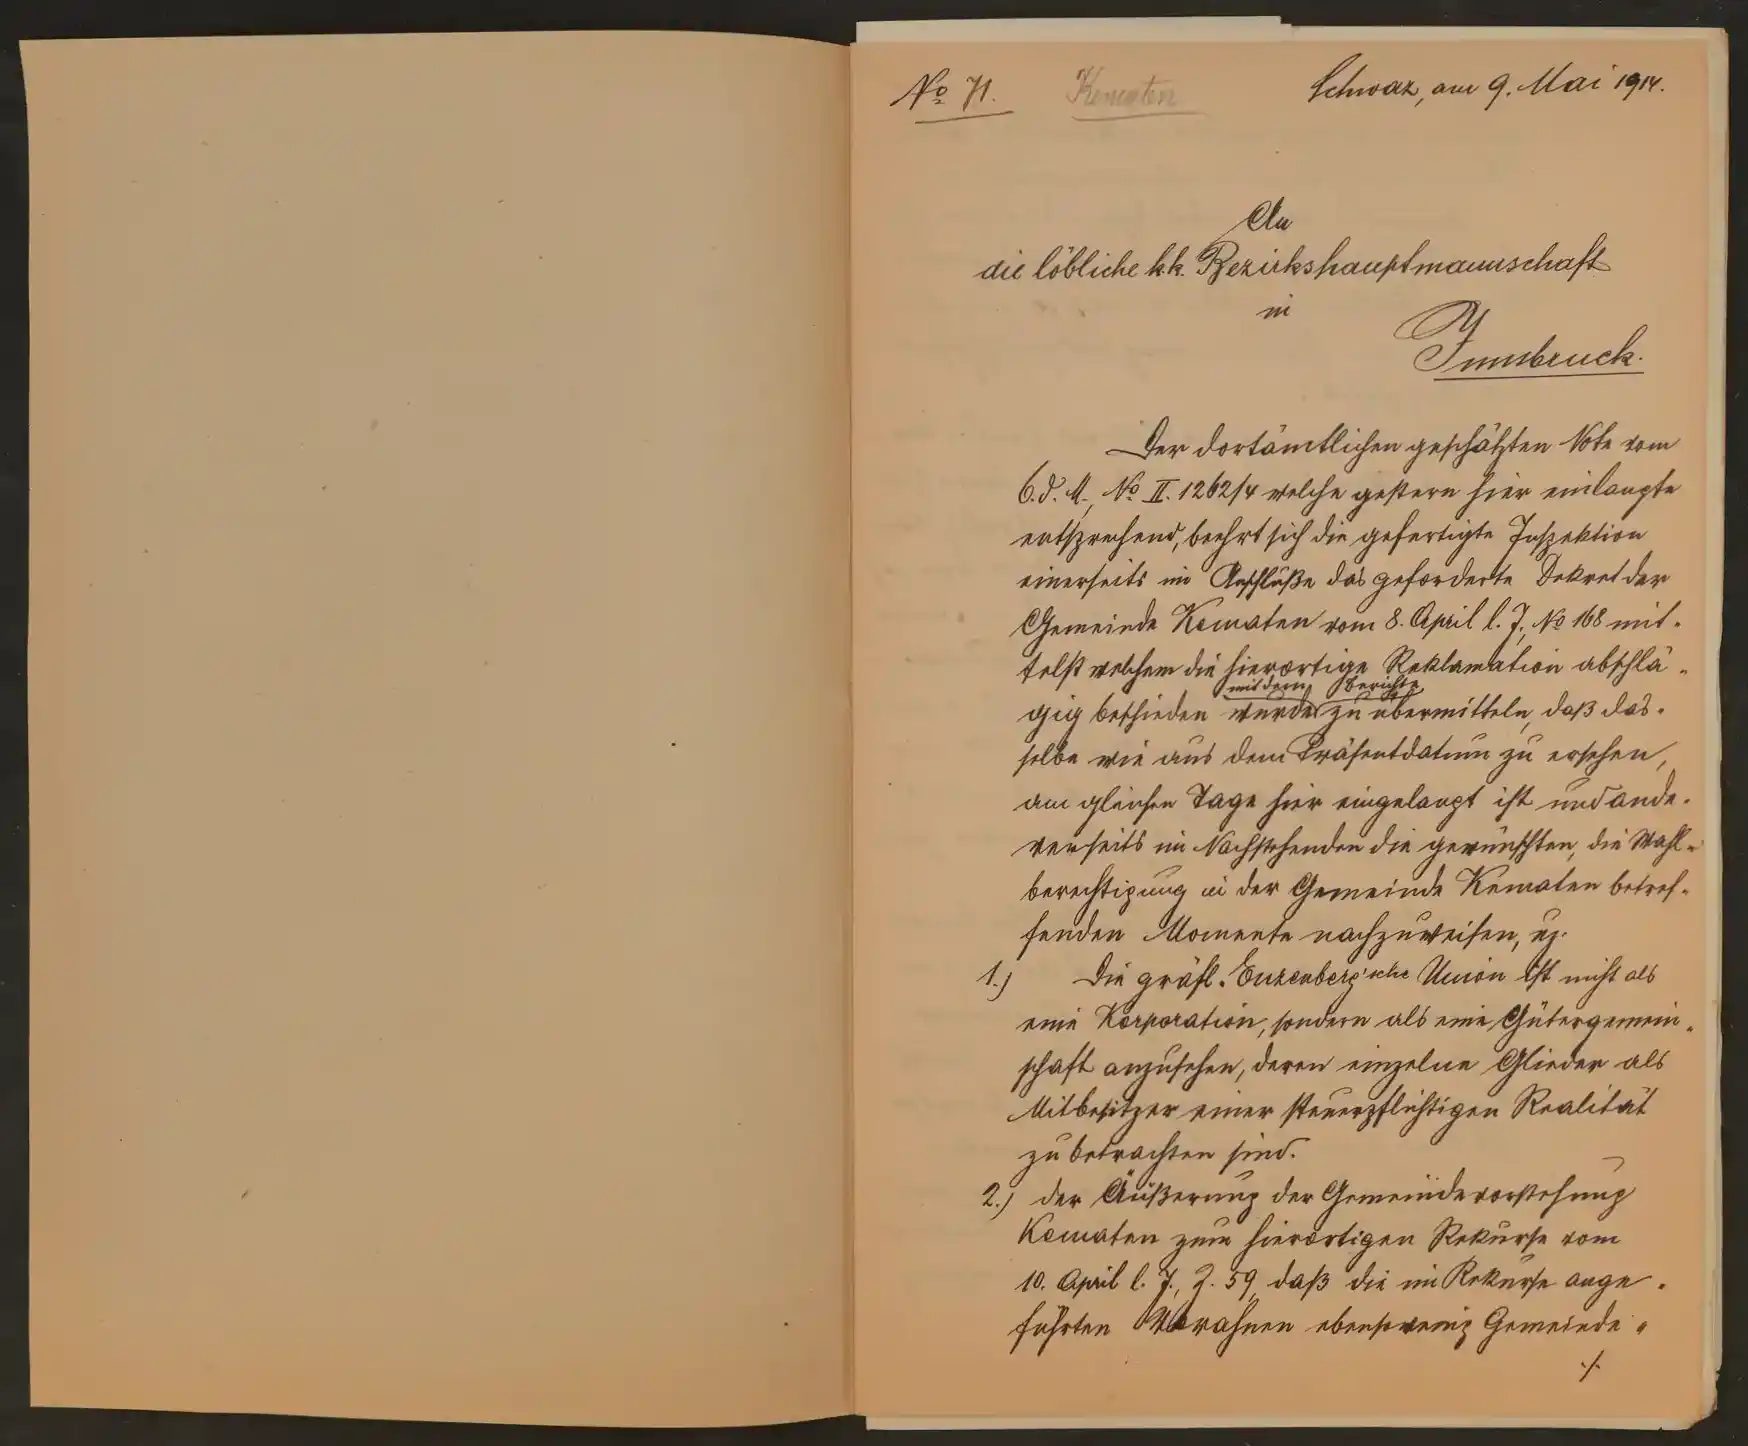 No 71.
Kematen
Schwaz, am 9. Mai 1914.
An
die löbliche kk. Bezirkshauptmannschaft
in
Innsbruck.
Der dortämtlichen geschätzten Note vom
6. d. M., No II. 1262/4 welche gestern hier einlangte
entsprechend, beehrt sich die gefertigte Inspektion
einerseits im Anschluße das geforderte Dekret der
Gemeinde Kematen vom 8. April l. J., No 168 mit-
telst welchem die hierortige Reklamation abschlä-
mit dem Berichte
gig beschieden wurde zu übermitteln, daß das-
selbe wie aus dem Präsentdatum zu ersehen,
am gleichen Tage hier eingelangt ist und ande-
rerseits im Nachstehenden die gewünschten, die Wahl-
berechtigung in der Gemeinde Kematen betref-
fenden Momente nachzuweisen, uz.
1.) Die gräfl. Enzenberg'sche Union ist nicht als
eine Korporation, sondern als eine Gütergemein-
schaft anzusehen, deren einzelne Glieder als
Mitbesitzer einer steuerpflichtigen Realität
zu betrachten sind.
2.) der Äußerung der Gemeindevorstehung
Kematen zum hierortigen Rekurse vom
10. April l. J., Z. 59, daß die im Rekurse ange-
führten Vorahnen ebensowenig Gemeinde-
./.